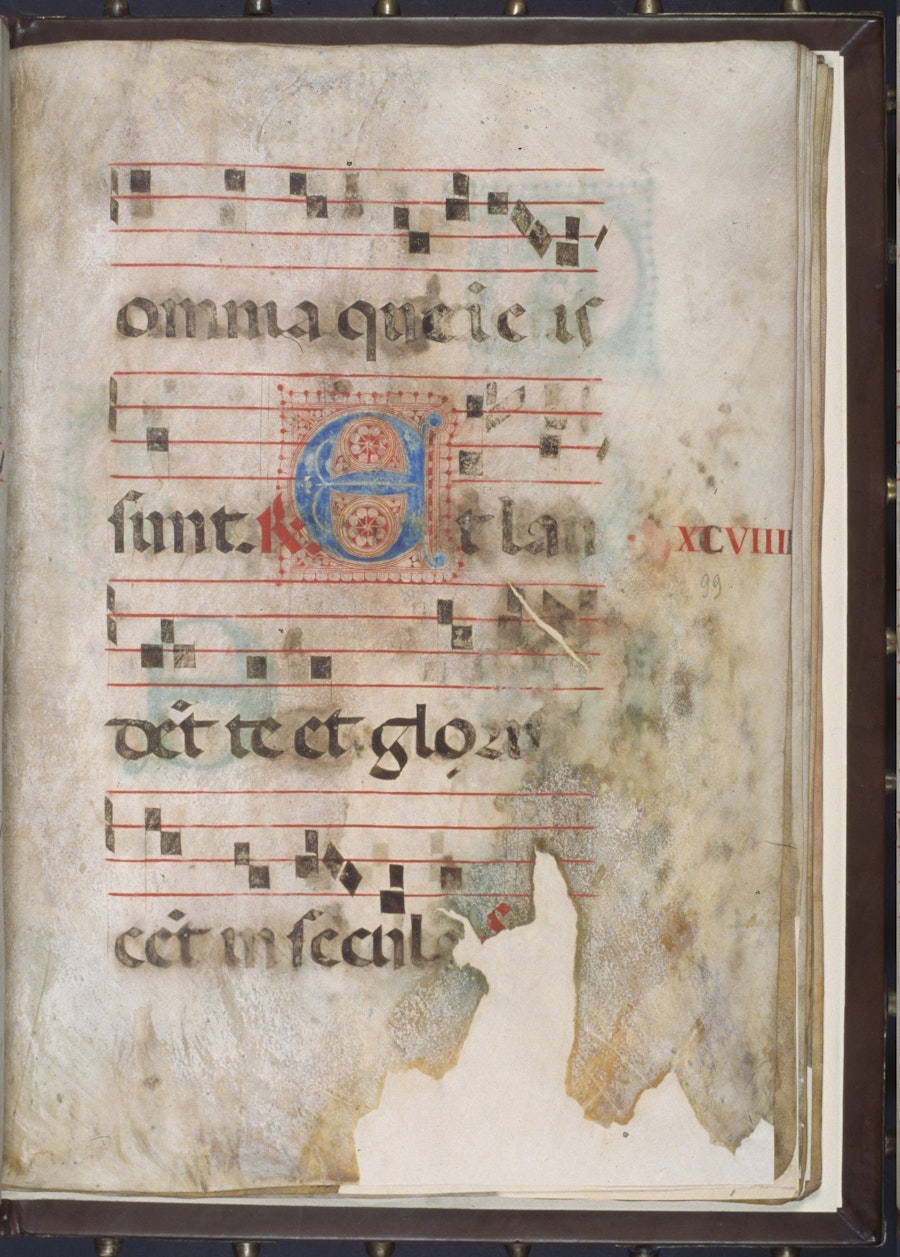 omnia que i e is
sunt. ℟. Et lau
XCVIIII
99
dēt te et glori
cēt in secula